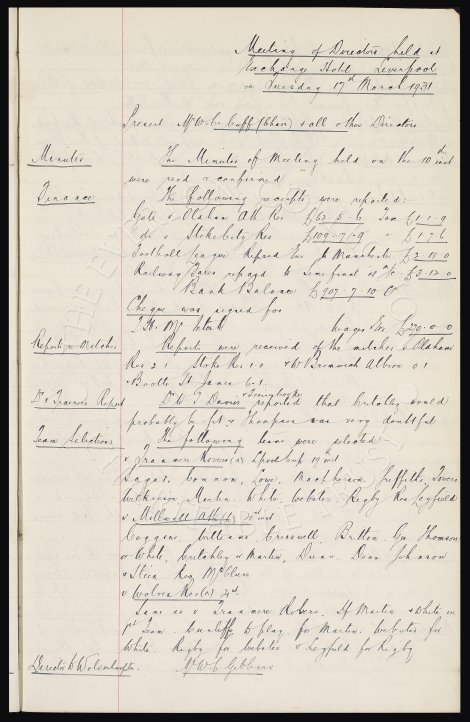 Meeting of Directors held at
Exchange Hotel Liverpool
on Tuesday 17th March 1931
Present Mr W. C. Cuff (Chair) & all other Directors
Minutes
The Minutes of Meeting held on the 10th inst
were read & confirmed
Finance
The following receipts were reported:
Gate v Oldham Ath Res £62.5.6
do v Stoke City Res £109.7.9 " £1.7.6
Football League
Railway Fares repayd to Semi final a/c
Bank Balance £907.7.10 Cr
Cheque was signed for
Wages &c £270.0.0
Reports v Matches
Reports were received of the matches v Oldham
Res 2.1 Stoke Res 1.0 & W Bromwich Albion 0.1
v Bootle St James 6.1.
Dr & Trainers Report
reported that Critchley would
probably be fit & Thompson was very doubtful
Team Selections
The following teams were selected:
v Tranmere Rovers (a) L'pool Cup 19th inst
Sagar. Common, Lowe, Macpherson. Griffiths, Towers
Wilkinson, Martin. White, Webster, Rigby Res Leyfield
v Millwall Ath (h) inst
Coggins, Williams Cresswell. Britton. Gee Thomson
or White, Critchley or Martin, Dunn. Dean Johnson
& Stein Res McClure
v Wolves Res (a)
Same as v Tranmere Rovers. If Martin & White in
1st Team. Cunliffe to play for Martin. Webster for
White. Rigby for Webster & Leyfield for Rigby
Director to Wolverhampton. Mr W. C. Gibbins